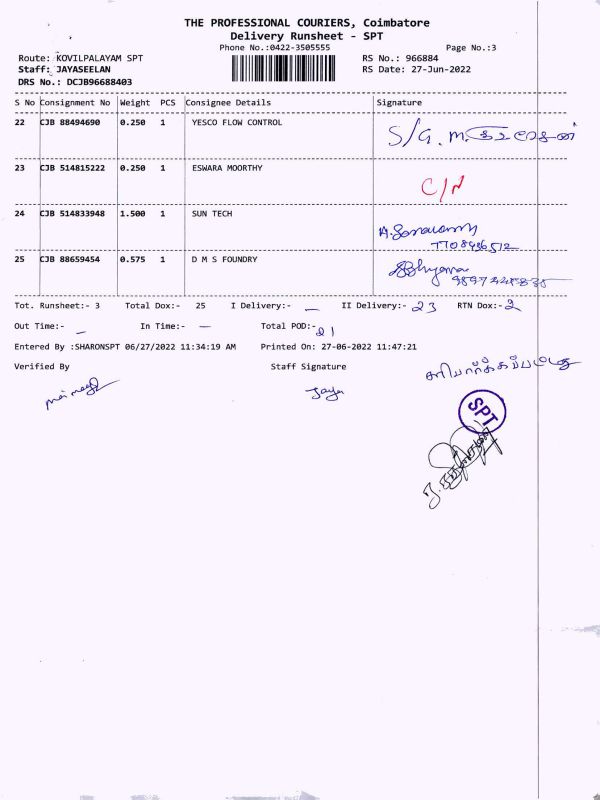 THE PROFESSIONAL COURIERS, Coimbatore
Delivery Runsheet - SPT
Phone No.:0422-3505555 Page No.:3
Route: KOVILPALAYAM SPT RS No.: 966884
Staff: JAYASEELAN RS Date: 27-Jun-2022
DRS No.: DCJB96688403
S No Consignment No Weight PCS Consignee Details Signature
22 CJB 88494690 0.250 1 YESCO FLOW CONTROL S/G. M.
23 CJB 514815222 0.250 1 ESWARA MOORTHY C/N
24 CJB 514833948 1.500 1 SUN TECH
7708436512
25 CJB 88659454 0.575 1 D M S FOUNDRY
Tot. Runsheet:- 3 Total Dox:- 25 I Delivery:- — II Delivery:- 23 RTN Dox:- 2
Out Time:- — In Time:- — Total POD:- 21
Entered By :SHARONSPT 06/27/2022 11:34:19 AM Printed On: 27-06-2022 11:47:21
Verified By Staff Signature சரிபார்க்கப்பட்டது
Jaya
SPT